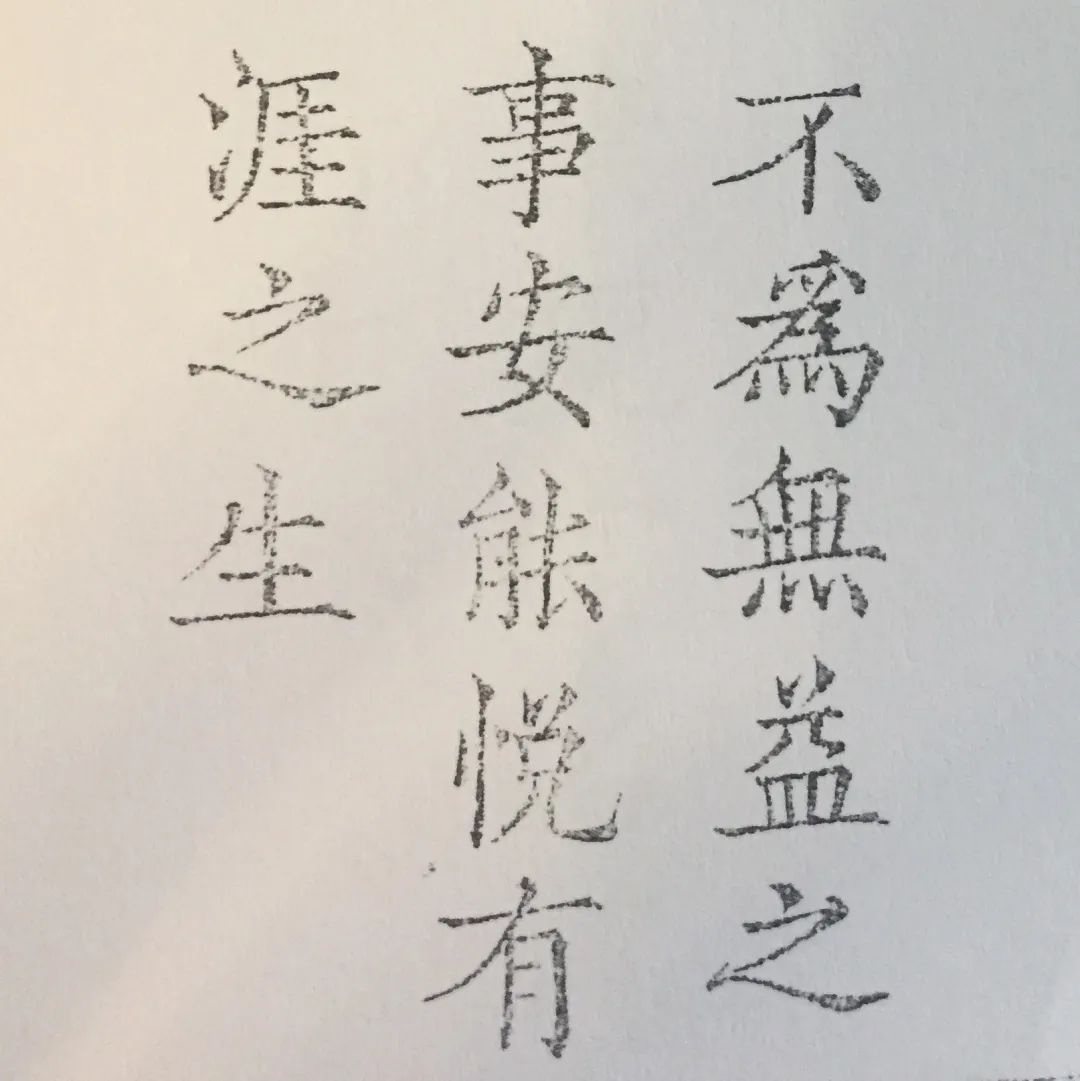 不為無益之
事安能悅有
涯之生